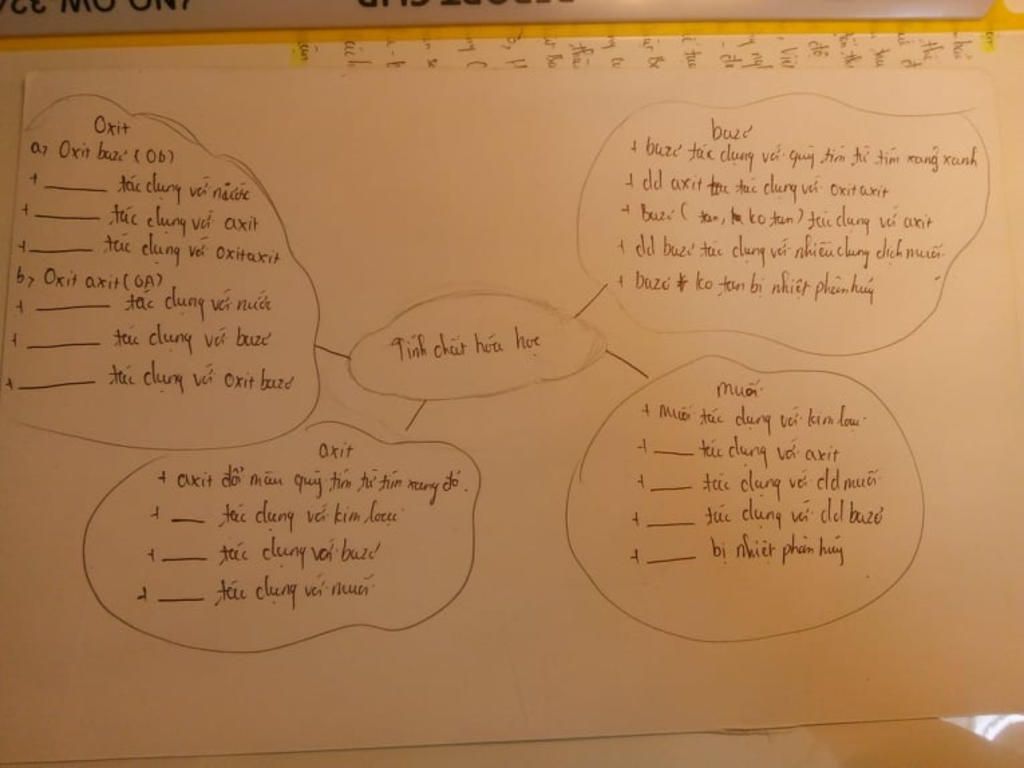 Oxit
a, Oxit bazơ (Ob)
+ ______ tác dụng với nước
+ ______ tác dụng với axit
+ ______ tác dụng với oxitaxit
b, Oxit axit (OA)
+ ______ tác dụng với nước
+ ______ tác dụng với bazơ
+ ______ tác dụng với oxit bazơ
bazơ
+ bazơ tác dụng với quỳ tím từ tím xang xanh
+ dd axit tác dụng với oxit axit
+ Bazơ (tan, ko tan) tác dụng với axit
+ dd bazơ tác dụng với nhiều dung dịch muối
+ bazơ ko tan bị nhiệt phân huỷ
Tính chất hóa học
axit
+ axit đổi màu quỳ tím từ tím xang đỏ.
+ ___ tác dụng với kim loại
+ ___ tác dụng với bazơ
+ ___ tác dụng với muối
muối
+ Muối tác dụng với kim loại
+ ___ tác dụng với axit
+ ___ tác dụng với dd muối
+ ___ tác dụng với dd bazơ
+ ___ bị nhiệt phân huỷ